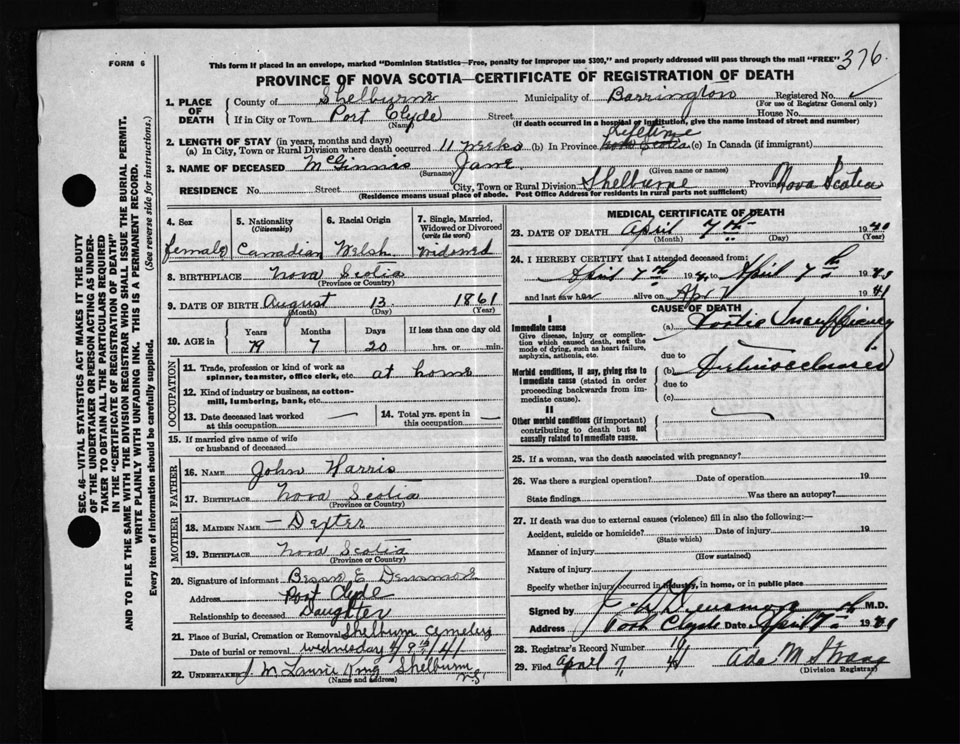 FORM 6
This form if placed in an envelope, marked "Dominion Statistics—Free, penalty for improper use $300," and properly addressed will pass through the mail "FREE"
376
PROVINCE OF NOVA SCOTIA—CERTIFICATE OF REGISTRATION OF DEATH
1. PLACE OF DEATH
County of Shelburne Municipality of Barrington Registered No.
(For use of Registrar General only)
If in City or Town Port Clyde Street House No.
(Name) (If death occurred in a hospital or institution, give the name instead of street and number)
2. LENGTH OF STAY (in years, months and days)
(a) In City, Town or Rural Division where death occurred 11 weeks (b) In Province Lifetime Nova Scotia (c) In Canada (if immigrant)
3. NAME OF DECEASED McGinnis Jane
(Surname) (Given name or names)
RESIDENCE No. Street City, Town or Rural Division Shelburne Province Nova Scotia
(Residence means usual place of abode. Post Office Address for residents in rural parts not sufficient)
4. Sex
female
5. Nationality
(Citizenship)
Canadian
6. Racial Origin
Welsh
7. Single, Married, Widowed or Divorced
(write the word)
Widowed
8. BIRTHPLACE Nova Scotia
(Province or Country)
9. DATE OF BIRTH August 13 1861
(Month) (Day) (Year)
10. AGE in
Years Months Days If less than one day old
79 7 20 hrs. or min.
OCCUPATION
11. Trade, profession or kind of work as
spinner, teamster, office clerk, etc. at home
12. Kind of industry or business, as cotton-
mill, lumbering, bank, etc.
13. Date deceased last worked
at this occupation —
14. Total yrs. spent in
this occupation —
15. If married give name of wife
or husband of deceased
FATHER
16. NAME John Harris
17. BIRTHPLACE Nova Scotia
(Province or Country)
MOTHER
18. MAIDEN NAME — Dexter
19. BIRTHPLACE Nova Scotia
(Province or Country)
20. Signature of informant E. Densmore
Address Port Clyde
Relationship to deceased Daughter
21. Place of Burial, Cremation or Removal Shelburn Cemetery
Date of burial or removal Wednesday 9th 41
22. UNDERTAKER J. M. King Shelburn N.S.
(Name and address)
MEDICAL CERTIFICATE OF DEATH
23. DATE OF DEATH April 7th 19
(Month) (Day) (Year)
24. I HEREBY CERTIFY that I attended deceased from:
April 7th 19 to April 7th 19
and last saw her alive on Apr 7 1941
CAUSE OF DEATH
I
Immediate cause
Give disease, injury or complication which caused death, not the mode of dying, such as heart failure, asphyxia, asthenia, etc.
(a) Aortic Insufficiency
due to
Morbid conditions, if any, giving rise to immediate cause (stated in order proceeding backwards from immediate cause).
(b) Arteriosclerosis
due to
(c)
II
Other morbid conditions (if important) contributing to death but not causally related to immediate cause.
25. If a woman, was the death associated with pregnancy?
26. Was there a surgical operation? Date of operation 19
State findings Was there an autopsy?
27. If death was due to external causes (violence) fill in also the following:—
Accident, suicide or homicide? Date of injury 19
(State which)
Manner of injury
(How sustained)
Nature of injury
Specify whether injury occurred in industry, in home, or in public place
Signed by Densmore M.D.
Address Port Clyde Date April 7th 19
28. Registrar's Record Number
29. Filed April 7, 41 Ada M
(Division Registrar)
SEC. 46—VITAL STATISTICS ACT MAKES IT THE DUTY
OF THE UNDERTAKER OR PERSON ACTING AS UNDER-
TAKER TO OBTAIN ALL THE PARTICULARS REQUIRED
IN THE "CERTIFICATE OF REGISTRATION OF DEATH"
AND TO FILE THE SAME WITH THE DIVISION REGISTRAR WHO SHALL ISSUE THE BURIAL PERMIT.
WRITE PLAINLY WITH UNFADING INK. THIS IS A PERMANENT RECORD.
Every item of information should be carefully supplied. (See reverse side for instructions.)